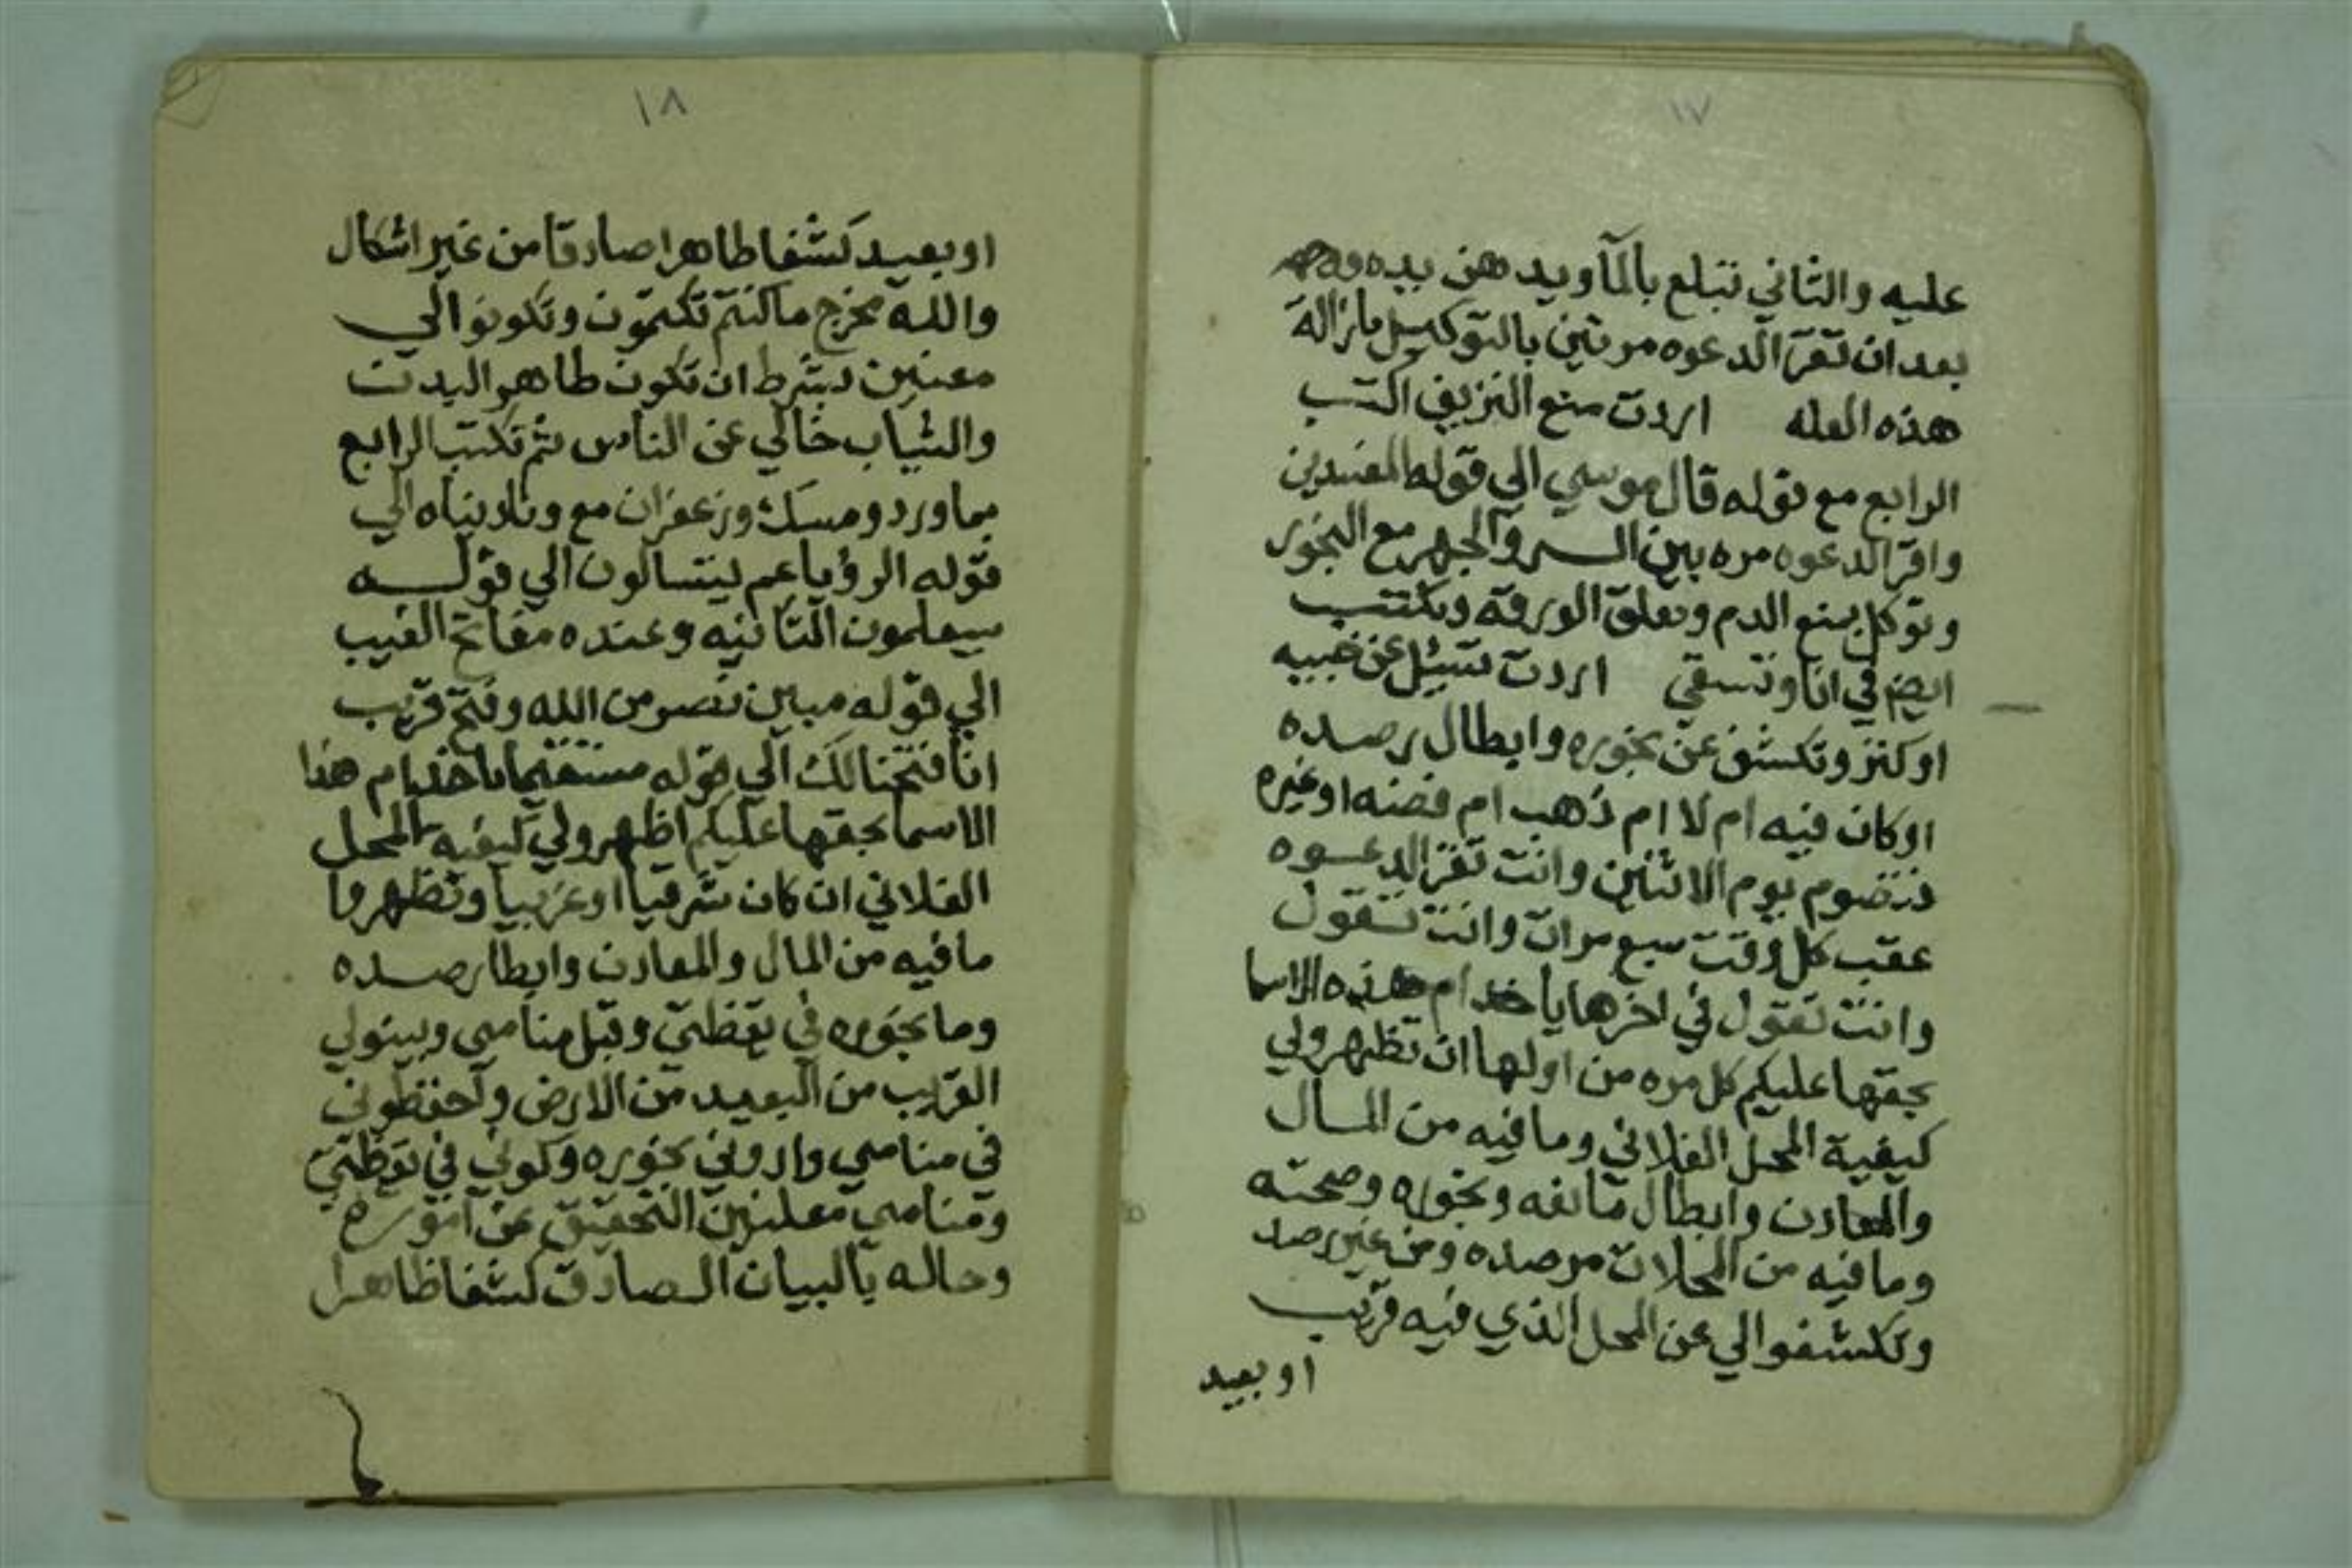 ١٧
عليه والثاني تبلع بالمآ ويدهن بيده
بعد ان تقرآ الدعوه مرتين بالتوكيل بازالة
هذه العله اردت منع النزيف اكتب
الرابع مع قوله قال موسي الي قوله المفسدين
واقرا الدعوه مره بين السر والجهر مع البخور
وتوكل بمنع الدم وتعلق الورقة وتكتب
ايضم في انا وتسقي اردت تسئل عن خبيه
او كنز وتكشف عن بخوره وابطال رصده
او كان فيه ام لا ام ذهب ام فضه او غيره
فتصوم يوم الاثنين وانت تقرا الدعوه
عقب كل وقت سبع مرات وانت تقول
وانت تقول في اخرها يا خدام هذه الاسما
بحقها عليكم كل مره من اولها ان تظهرو لي
كيفية المحل الفلاني وما فيه من المال
والمعادن وابطال مانعه وبخوره وصحته
وما فيه من المحلات مرصده ومن غير رصد
وتكشفوا لي عن المحل الذي فيه قريب
او بعيد
١٨
او بعيد كشفا ظاهرا صادقا من غير اشكال
والله مخرج ما كنتم تكتمون وتكونوا لي
معنين بشرط ان تكون طاهر البدن
والثياب خالي عن الناس ثم تكتب الرابع
بماورد ومسك وزعفران مع وناديناه الي
قوله الرؤيا عم يتسالون الي قوله
سيعلمون الثانيه وعنده مفاتح الغيب
الي قوله مبين نصر من الله وفتح قريب
انا فتحنا لك الي قوله مستقيما يا خدام هذا
الاسما بحقها عليكم اظهرو لي كيفية المحل
الفلاني ان كان شرقيا او غربيا وتظهروا
ما فيه من المال والمعادن وابطا رصده
وما بخوره في يقظتي وقبل منامي وبينو لي
القريب من البعيد من الارض ولحفظوني
في منامي واروني بخوره وكوني في يقظتي
ومنامي معلنين التحقيق عن اموره
وحاله بالبيان الصادق كشفا ظاهرا